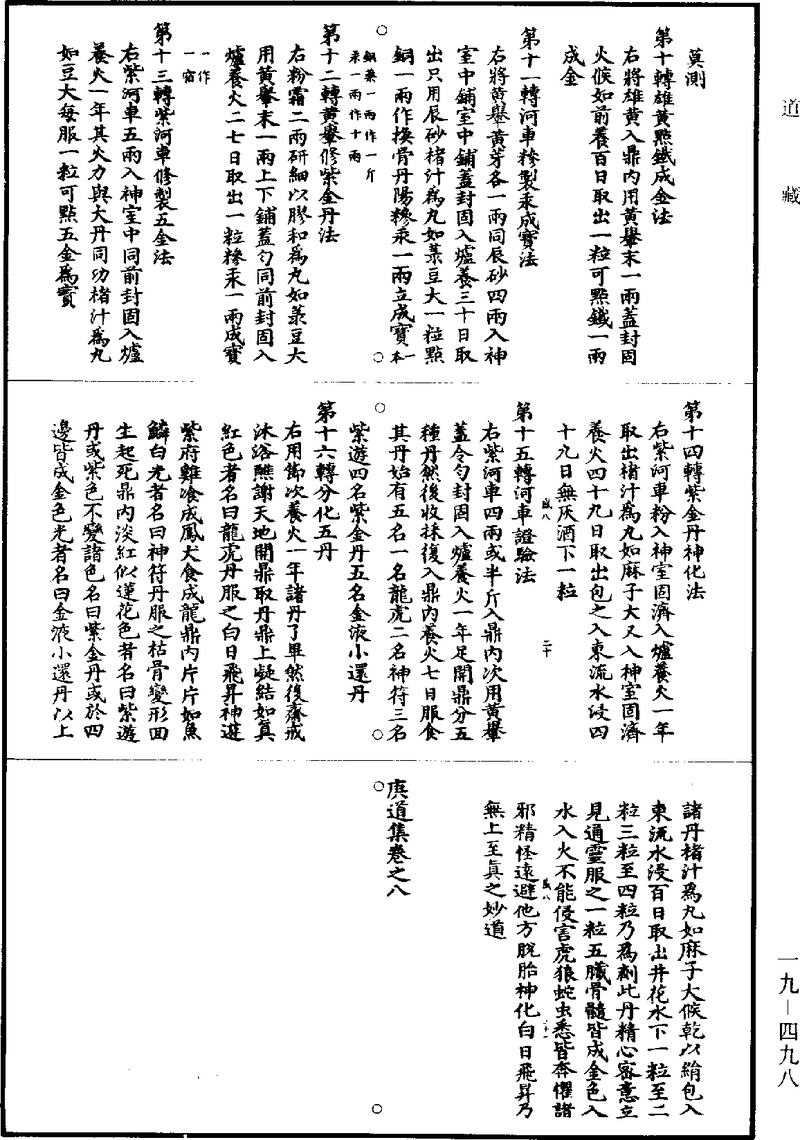 道藏
莫測
第十轉雄黃點鐵成金法
右將雄黃入鼎內用黃轝末一兩蓋封固
火候如前養百日取出一粒可點鐵一兩
成金
第十一轉河車糝製汞成寳法
右將黃轝黃芽各一兩同辰砂四兩入神
室中鋪室中鋪蓋封固入爐養三十日取
出只用辰砂楮汁爲丸如菉豆大一粒點
銅一兩作換骨丹陽糝汞一兩立成寳
銅汞一兩作一斤
汞一兩作十兩
第十二轉黃轝修紫金丹法
右粉霜二兩研細以膠和爲丸如菉豆大
用黃轝末一兩上下鋪蓋勻同前封固入
爐養火二七日取出一粒糝汞一兩成寳
一作
一宿
第十三轉紫河車修製五金法
右紫河車五兩入神室中同前封固入爐
養火一年其火力與大丹同功楮汁爲丸
如豆大每服一粒可點五金爲寳
第十四轉紫金丹神化法
右紫河車粉入神室固濟入爐養火一年
取出楮汁爲丸如麻子大又入神室固濟
養火四十九日取出包之入東流水浸四
十九日無灰酒下一粒
第十五轉河車證驗法
右紫河車四兩或半斤入鼎內次用黃轝
蓋令勻封固入爐養火一年足開鼎分五
種丹然後收採復入鼎內養火七日服食
其丹始有五名一名龍虎二名神符三名
紫遊四名紫金丹五名金液小還丹
第十六轉分化五丹
右用節次養火一年諸丹了畢然後齋戒
沐浴醮謝天地開鼎取丹鼎上凝結如真
紅色者名曰龍虎丹服之白日飛昇神遊
紫府雞飡成鳳犬食成龍鼎內片片如魚
鱗白光者名曰神符丹服之枯骨變形回
生起死鼎內淡紅似蓮花色者名曰紫遊
丹或紫色不變諸色名曰紫金丹或於四
邊皆成金色光者名曰金液小還丹以上
諸丹楮汁爲丸如麻子大候乾以絹包入
東流水浸百日取出井花水下一粒至二
粒三粒至四粒乃爲劑此丹精心審意立
見通靈服之一粒五臟骨髓皆成金色入
水入火不能侵害虎狼蛇虫悉皆奔懼諸
邪精怪遠避他方脫胎神化白日飛昇乃
無上至真之妙道
庚道集卷之八
一九－四九八